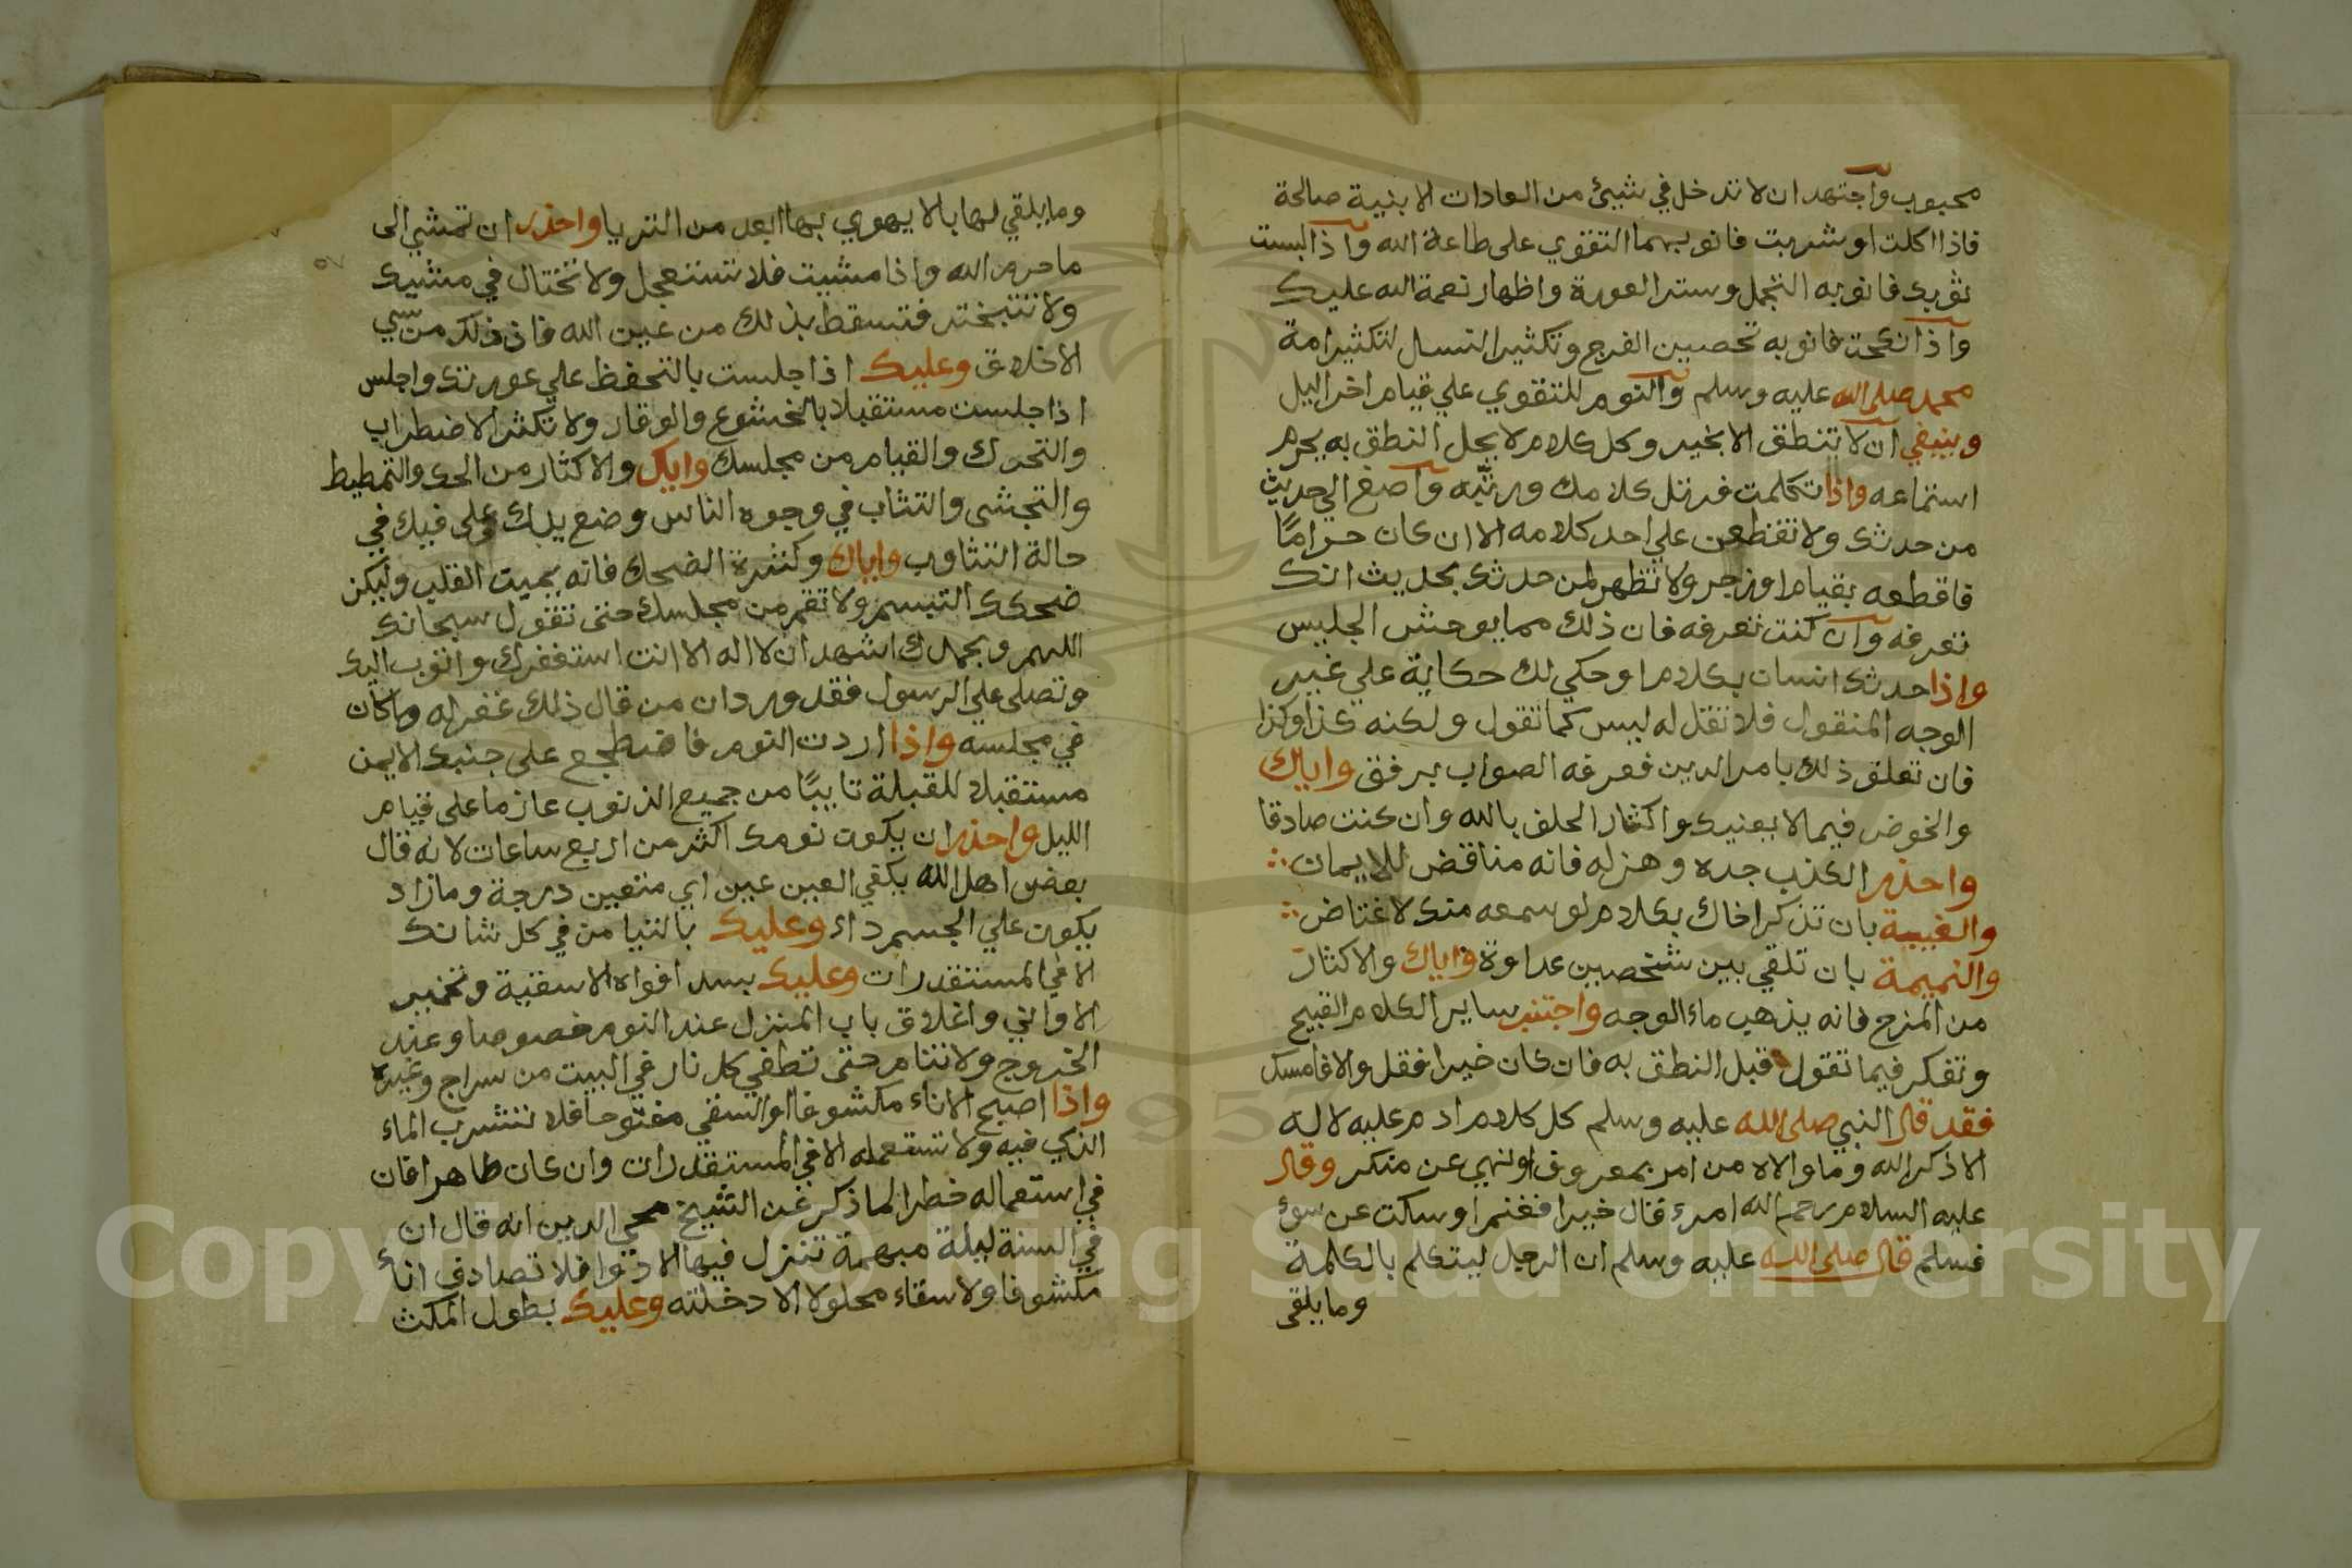 محبوب واجتهد ان لا تدخل في شيئ من العادات الا بنية صالحة
فاذا اكلت او شربت فانو بهما التقوي على طاعة الله واذا لبست
ثوبك فانو به التجمل وستر العورة واظهار نعمة الله عليك
واذا نكحت فانو به تحصين الفرج وتكثير النسل لتكثير امة
محمد صلى الله عليه وسلم والنوم للتقوي علي قيام اخر اليل
وينبغي ان لا تنطق الا بخير وكل كلام لا يحل النطق به يحرم
استماعه واذا تكلمت فرتل كلامك ورتبه واصغ الي حديث
من حدثك ولا تقطعن علي احد كلامه الا ان كان حراما
فاقطعه بقيام او زجر ولا تظهر لمن حدثك بحديث انك
تعرفه وان كنت تعرفه فان ذلك مما يوحش الجليس
واذا حدثك انسان بكلام او حكي لك حكاية علي غير
الوجه المنقول فلا تقل له ليس كما تقول ولكنه كذا وكذا
فان تعلق ذلك بامر الدين فعرفه الصواب برفق واياك
والخوض فيما لا يعنيك واكثار الحلف بالله وان كنت صادقا
واحذر الكذب جده وهزله فانه مناقض للايمان
والغيبة بان تذكر اخاك بكلام لو سمعه منك لاغتاض
والنميمة بان تلقي بين شخصين عداوة واياك والاكثار
من المزح فانه يذهب ماء الوجه واجتنب ساير الكلام القبيح
وتفكر فيما تقول قبل النطق به فان كان خيرا فقل والا فامسك
فقد قال النبي صلى الله عليه وسلم كل كلام ادم عليه لا له
الا ذكر الله وما والاه من امر بمعروف او نهي عن منكر وقال
عليه السلام رحم الله امرء قال خيرا فغنم او سكت عن سوء
فسلم قال صلى الله عليه وسلم ان الرجل ليتكلم بالكلمة
وما يلقى
وما يلقي لها بالا يهوي بها ابعد من الثريا واحذر ان تمشي الى
ما حرم الله واذا مشيت فلا تستعجل ولا تختال في مشيك
ولا تتبختر فتسقط بذلك من عين الله فان ذلك من سيي
الاخلاق وعليك اذا جلست بالتحفظ علي عورتك واجلس
اذا جلست مستقبلا بالخشوع والوقار ولا تكثر الاضطراب
والتحرك والقيام من مجلسك واياك والاكثار من الحك والتمطيط
والتجشى والتثاب في وجوه الناس وضع يدك على فيك في
حالة التثاوب واياك وكثرة الضحك فانه يميت القلب وليكن
ضحكك التبسم ولا تقم من مجلسك حتى تقول سبحانك
اللهم وبحمدك اشهد ان لا اله الا انت استغفرك واتوب اليك
وتصلى علي الرسول فقد ورد ان من قال ذلك غفر له ما كان
في مجلسه واذا اردت النوم فاضطجع على جنبك الايمن
مستقبلا للقبلة تايبا من جميع الذنوب عازما على قيام
الليل واحذر ان يكون نومك اكثر من اربع ساعات لانه قال
بعض اهل الله يكفي العين عين اي متعين درجة وما زاد
يكون علي الجسم داء وعليك بالتيامن في كل شانك
الا في المستقدرات وعليك بسد افواه الاسقية وتخمير
الاواني واغلاق باب المنزل عند النوم خصوصا وعند
الخروج ولا تنام حتى تطفي كل نار في البيت من سراج وغيره
واذا اصبح الاناء مكشوفا او السقي مفتوحا فلا تشرب الماء
الذي فيه ولا تستعمله الا في المستقدرات وان كان طاهرا فان
في استعماله خطرا لما ذكر عن الشيخ محي الدين انه قال ان
في السنة ليلة مبهمة تنزل فيها الادوا فلا تصادف اناء
مكشوفا ولا سقاء محلولا الا دخلته وعليك بطول المكث